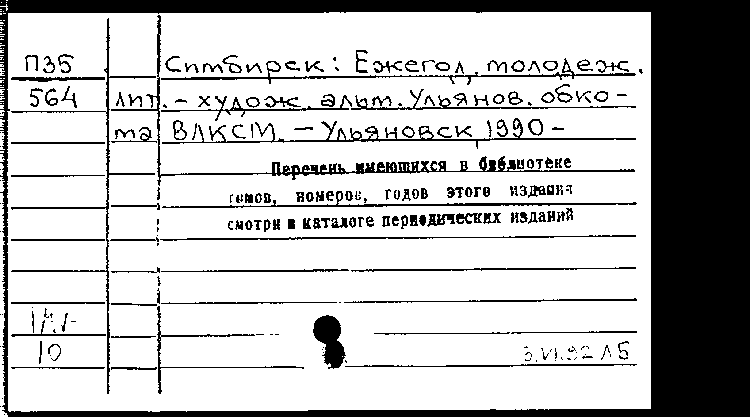 П35 Симбирск: Ежегод. молодеж.
564 лит.-худож. альм. Ульянов. обко-
ма ВЛКСМ. - Ульяновск, 1990-
Перечень имеющихся в библиотеке
томов, номеров, годов этого издания
смотри в каталоге периодических изданий
10 3.VI.92 ЛБ